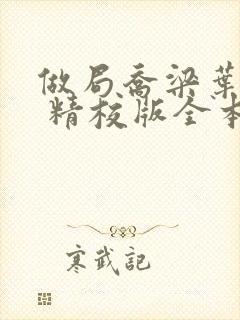 做局乔梁葉
精校版全本
寒武記